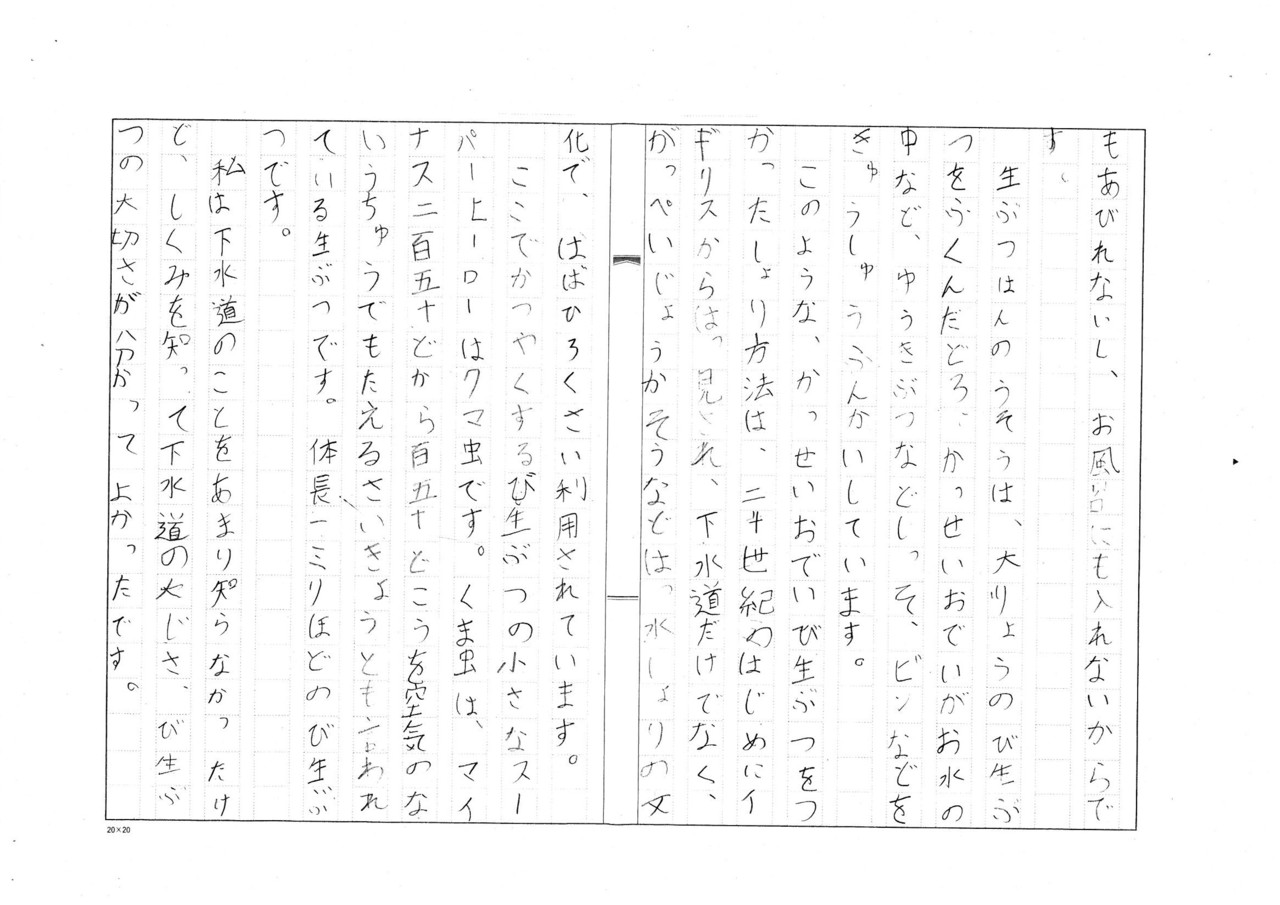 もあびれないし、お風呂にも入れないからで
す。
生ぶつはんのうそうは、大りょうのび生ぶ
つをふくんだどろ、かっせいおでいがお水の
中など、ゆうきぶつなどしっそ、ビンなどを
きゅうしゅうふんかいしています。
このような、かっせいおでいび生ぶつをつ
かったしょり方法は、二十世紀のはじめにイ
ギリスからは、見され、下水道だけでなく、
がっぺいじょうかそうなどはっ水しょりの文
化で、はばひろくさい利用されています。
ここでかつやくするび生ぶつの小さなスー
パーヒーローはクマ虫です。くま虫は、マイ
ナス二百五十どから百五十どこうを空気のな
いうちゅうでもたえるさいきょうとも言われ
ている生ぶつです。体長、一ミリほどのび生ぶ
つです。
私は下水道のことをあまり知らなかったけ
ど、しくみを知って下水道の大じさ、び生ぶ
つの大切さが分かってよかったです。
20×20